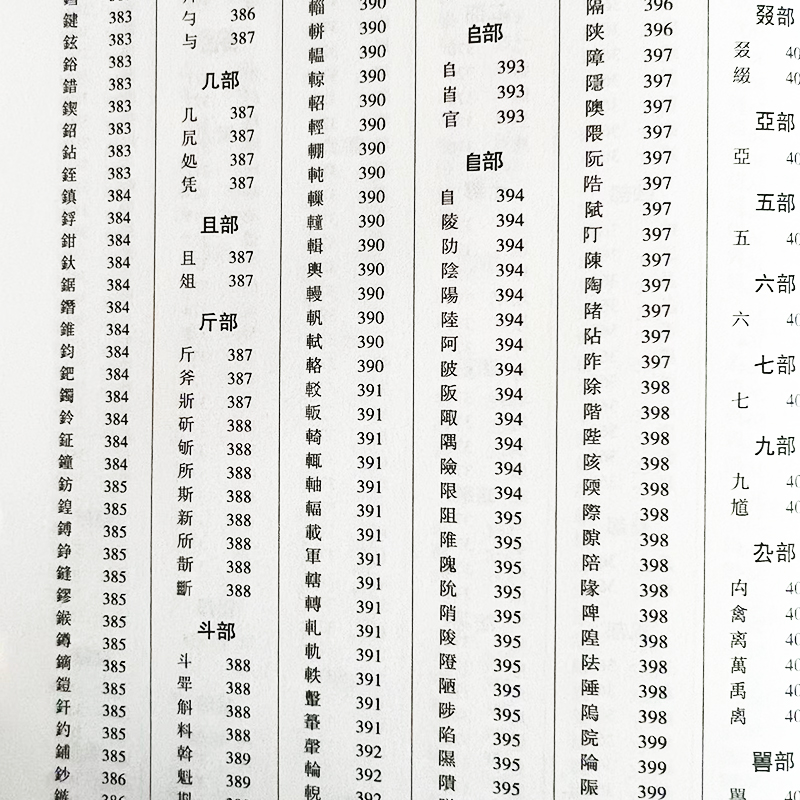 鍵 383
鉉 383
鋊 383
錯 383
鍥 383
鉊 383
鉆 383
銍 383
鎮 384
鋝 384
鉗 384
釱 384
鋸 384
鐕 384
錐 384
鈞 384
鈀 384
鐲 384
鈴 384
鉦 384
鐘 384
鈁 385
鍠 385
鎛 385
錚 385
鏠 385
鏐 385
鍭 385
鐏 385
鏑 385
鎧 385
釬 385
釣 385
鋪 385
鈔 386
勺 386
与 387
几部
几 387
凥 387
処 387
凭 387
且部
且 387
俎 387
斤部
斤 387
斧 387
斨 387
斫 388
斪 388
所 388
斯 388
新 388
斦 388
斮 388
斷 388
斗部
斗 388
斝 388
斛 388
料 388
斡 389
魁 389
輜 390
軿 390
輼 390
輬 390
軺 390
輕 390
輣 390
軘 390
轈 390
輯 390
輿 390
軓 390
軾 390
輅 390
較 391
軹 391
輢 391
輒 391
軸 391
輻 391
載 391
軍 391
轄 391
轉 391
軋 391
軌 391
軼 391
輪 392
輗 392
393
393
官 393
394
陵 394
阞 394
陰 394
陽 394
陸 394
阿 394
陂 394
阪 394
陬 394
隅 394
險 394
限 394
阻 395
陮 395
隗 395
阭 395
陗 395
陖 395
隥 395
陋 395
陟 395
陷 395
隰 395
隤 395
隔 396
陝 396
障 397
隱 397
隩 397
隈 397
阮 397
陼 397
阽 397
阼 397
阠 397
陳 397
陶 397
除 398
階 398
陛 398
陔 398
際 398
隙 398
陪 398
隊 398
陴 398
隍 398
阹 398
陲 398
隖 398
院 399
陯 399
陙 399
叕部
叕
綴
亞部
亞
五部
五
六部
六
七部
七
九部
九
馗
禸部
禸
禽
离
萬
禹
嘼部